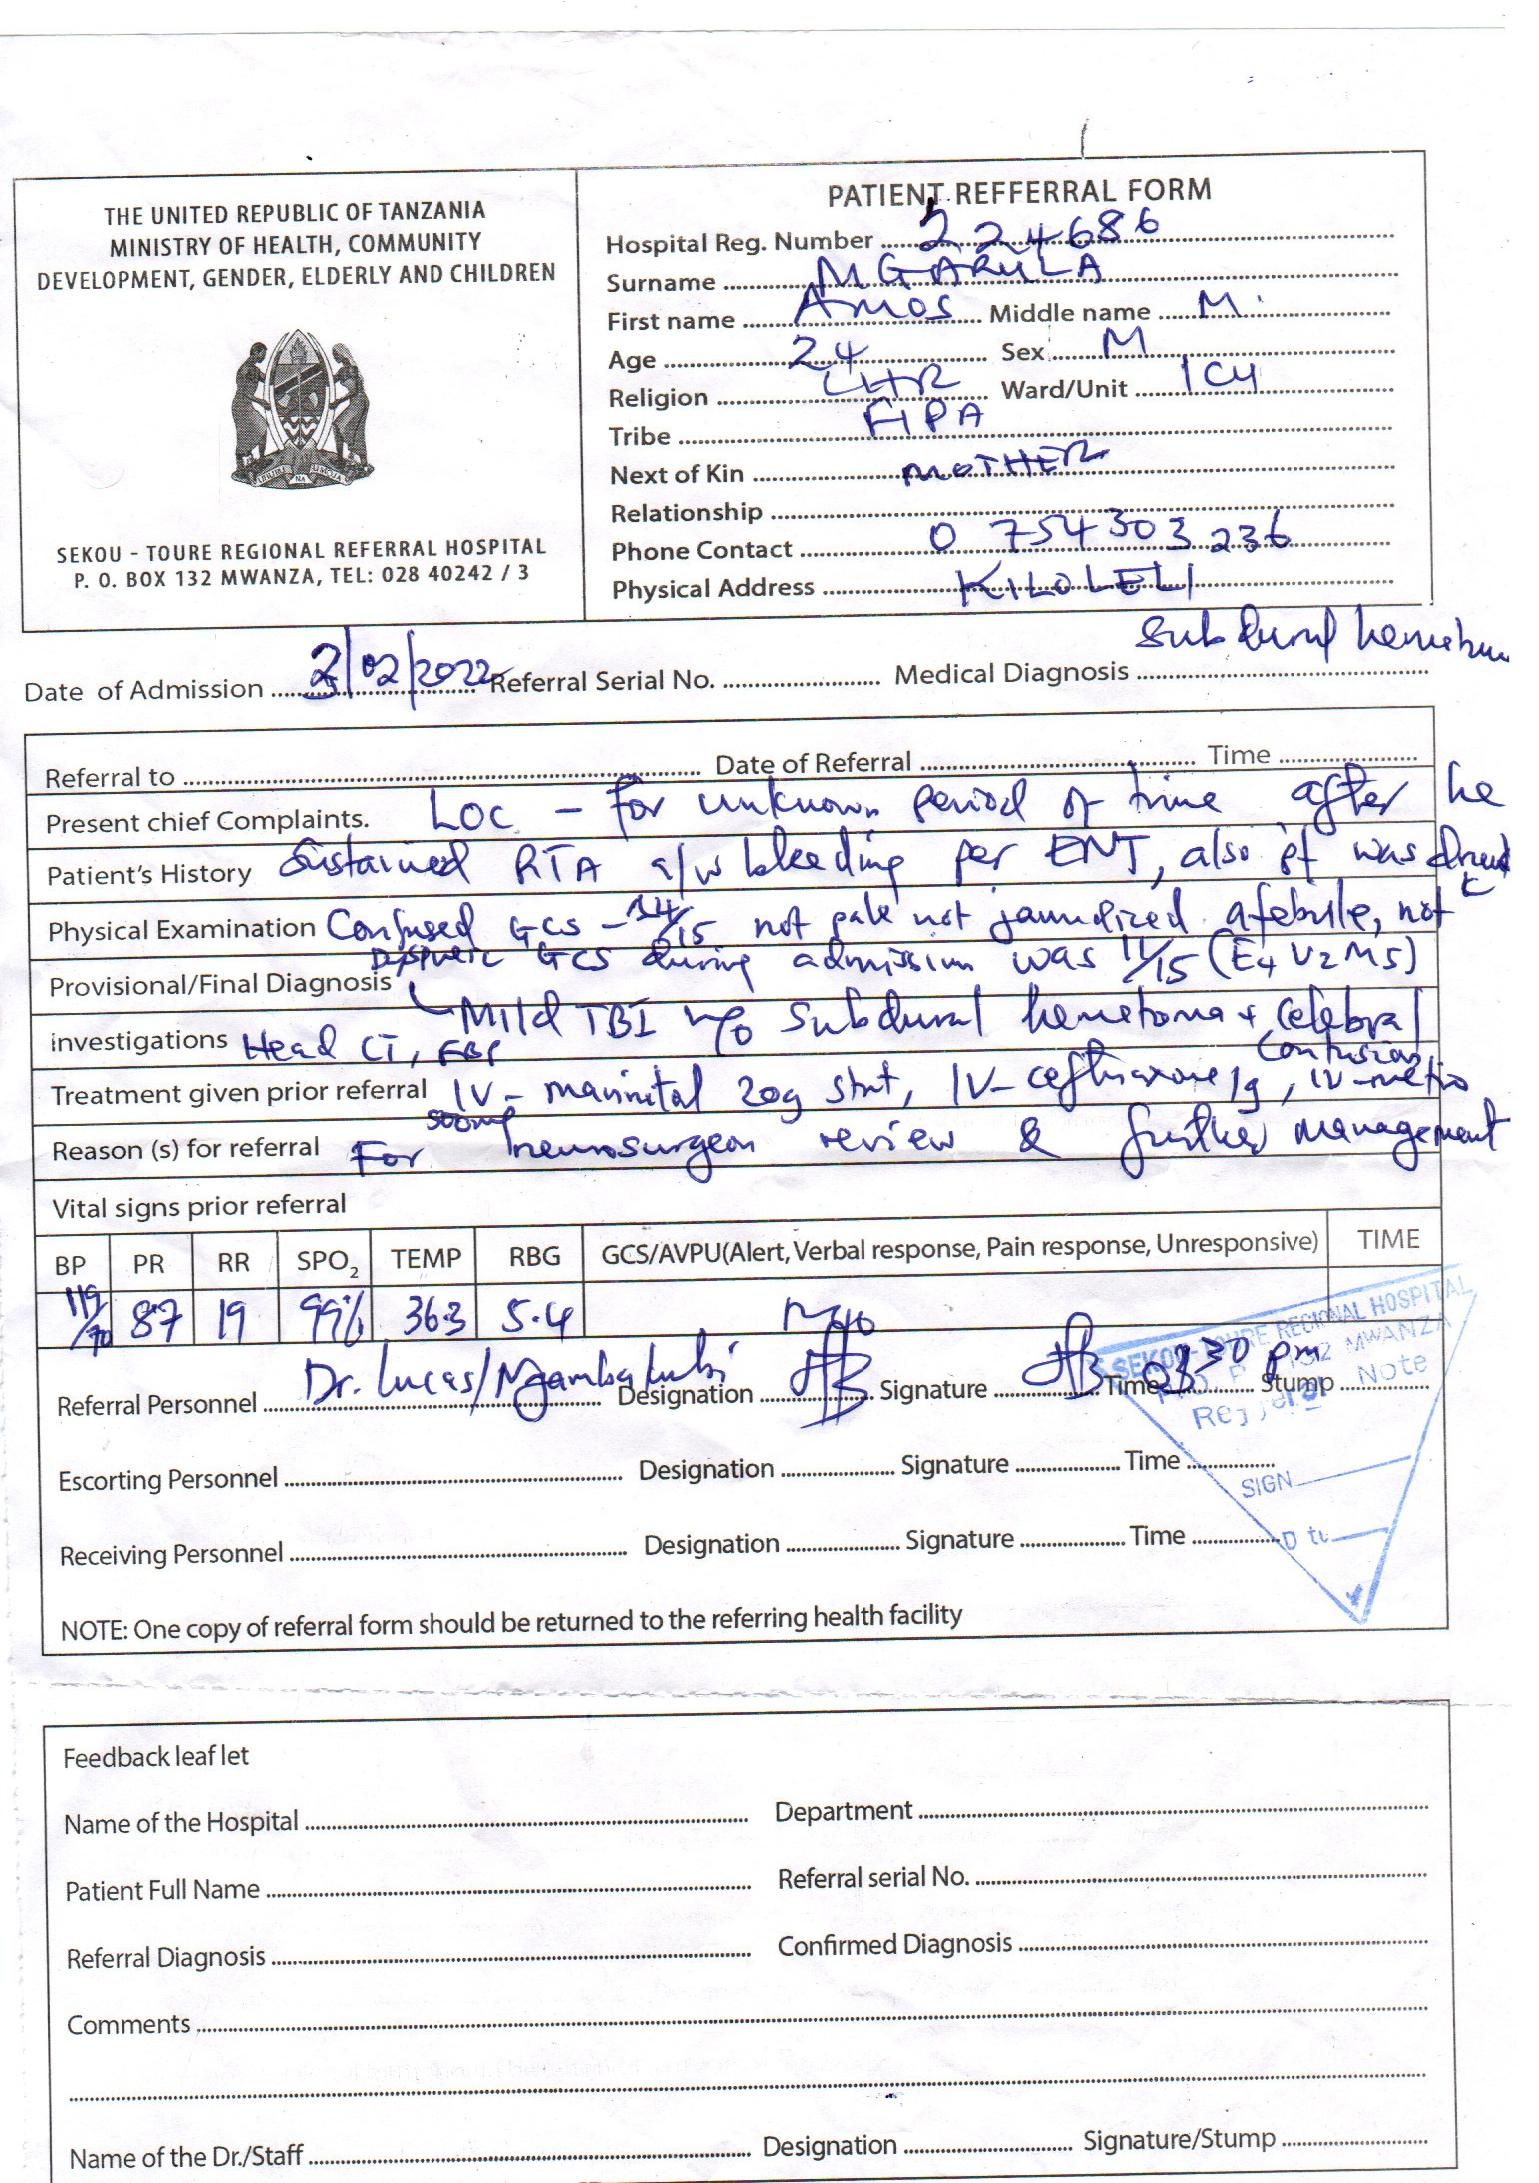 THE UNITED REPUBLIC OF TANZANIA
MINISTRY OF HEALTH, COMMUNITY
DEVELOPMENT, GENDER, ELDERLY AND CHILDREN
SEKOU - TOURE REGIONAL REFERRAL HOSPITAL
P. O. BOX 132 MWANZA, TEL: 028 40242 / 3
PATIENT REFFERRAL FORM
Hospital Reg. Number 224686
Surname MGARULA
First name AMOS Middle name M.
Age 24 Sex M
Religion CHR Ward/Unit ICU
Tribe FIPA
Next of Kin MOTHER
Relationship
Phone Contact 0 754 303 236
Physical Address KILOLELI
Date of Admission /02/2022 Referral Serial No. Medical Diagnosis Subdural hematoma
Referral to Date of Referral Time
Present chief Complaints. LOC - for unknown period of time after he
Patient's History Sustained RTA a/w bleeding per ENT, also pt was drunk
Physical Examination Confused GCS - 14/15 not pale not jaundized afebrile, not
Dyspneic GCS during admission was 11/15 (E4 V2 M5)
Provisional/Final Diagnosis Mild TBI subdural hematoma + Celebral
Contusion
investigations Head CT, FBP
Treatment given prior referral IV- mannital 20g stat, IV- ceftriaxone 1g, IV-metro
500mg
Reason (s) for referral For neurosurgeon review & further management
Vital signs prior referral
BP PR RR SPO2 TEMP RBG GCS/AVPU(Alert, Verbal response, Pain response, Unresponsive) TIME
119/70 87 19 99% 36.3 5.4
Referral Personnel Dr. Lucas/ Designation Signature Time 30 pm Stump
SEKOU-TOURE REGIONAL HOSPITAL
132 MWANZA
Note
SIGN
Escorting Personnel Designation Signature Time
Receiving Personnel Designation Signature Time
NOTE: One copy of referral form should be returned to the referring health facility
Feedback leaf let
Name of the Hospital Department
Patient Full Name Referral serial No.
Referral Diagnosis Confirmed Diagnosis
Comments
Name of the Dr./Staff Designation Signature/Stump